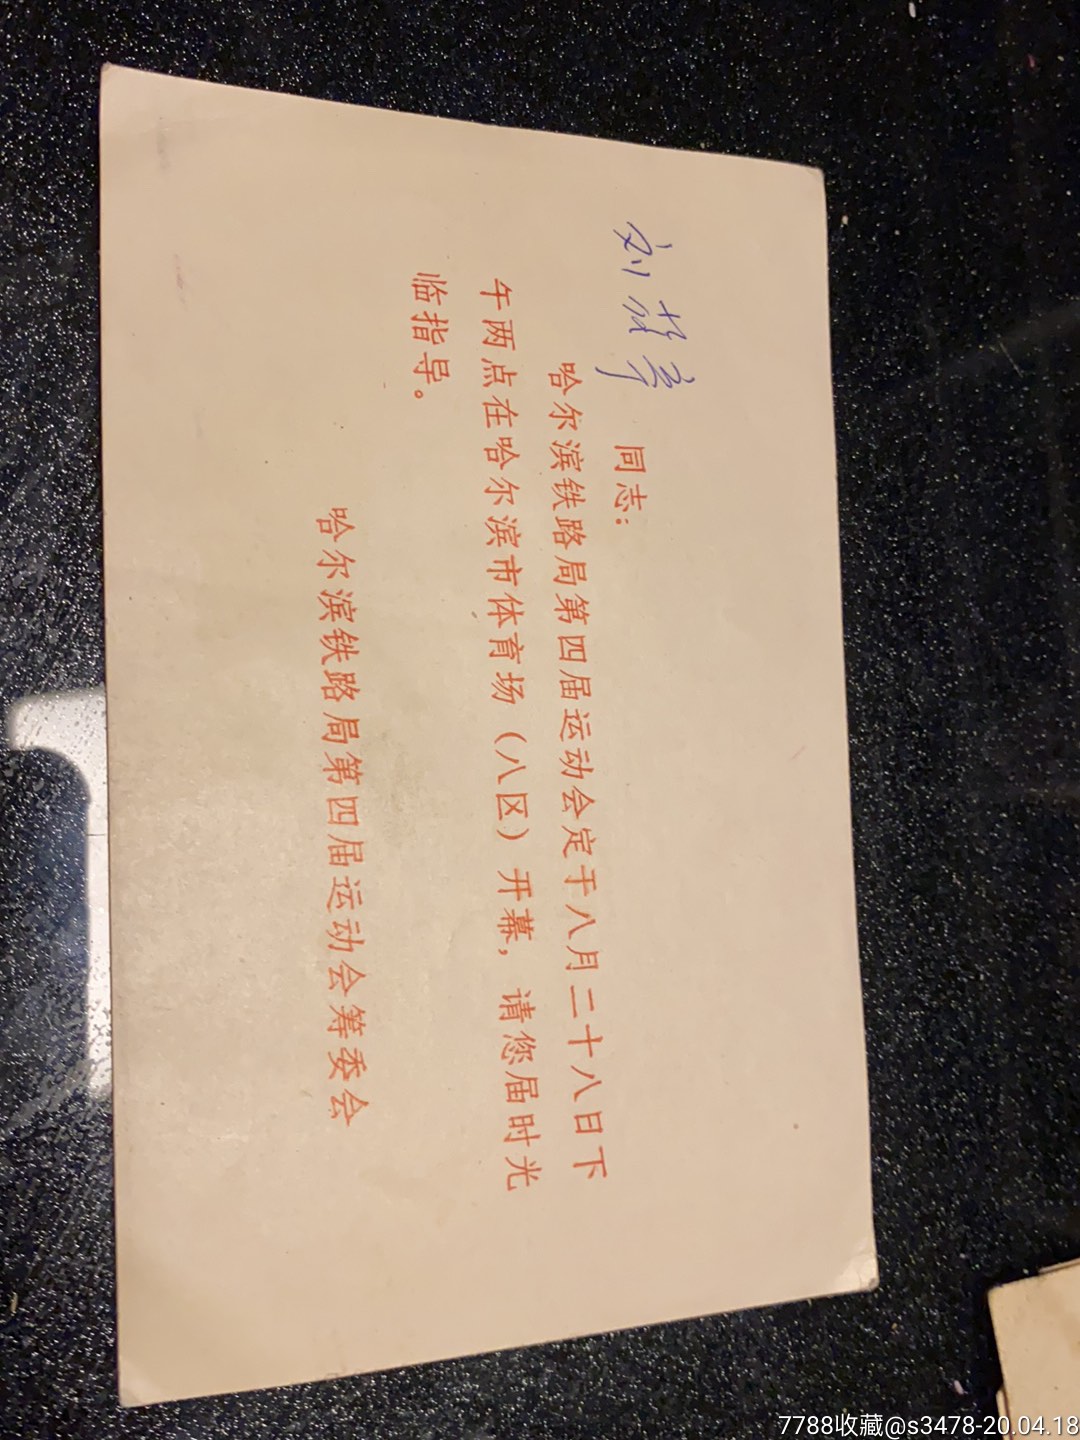 刘
同志：
哈尔滨铁路局第四届运动会定于八月二十八日下
午两点在哈尔滨市体育场（八区）开幕，请您届时光
临指导。
哈尔滨铁路局第四届运动会筹委会
7788收藏@s3478-20.04.18